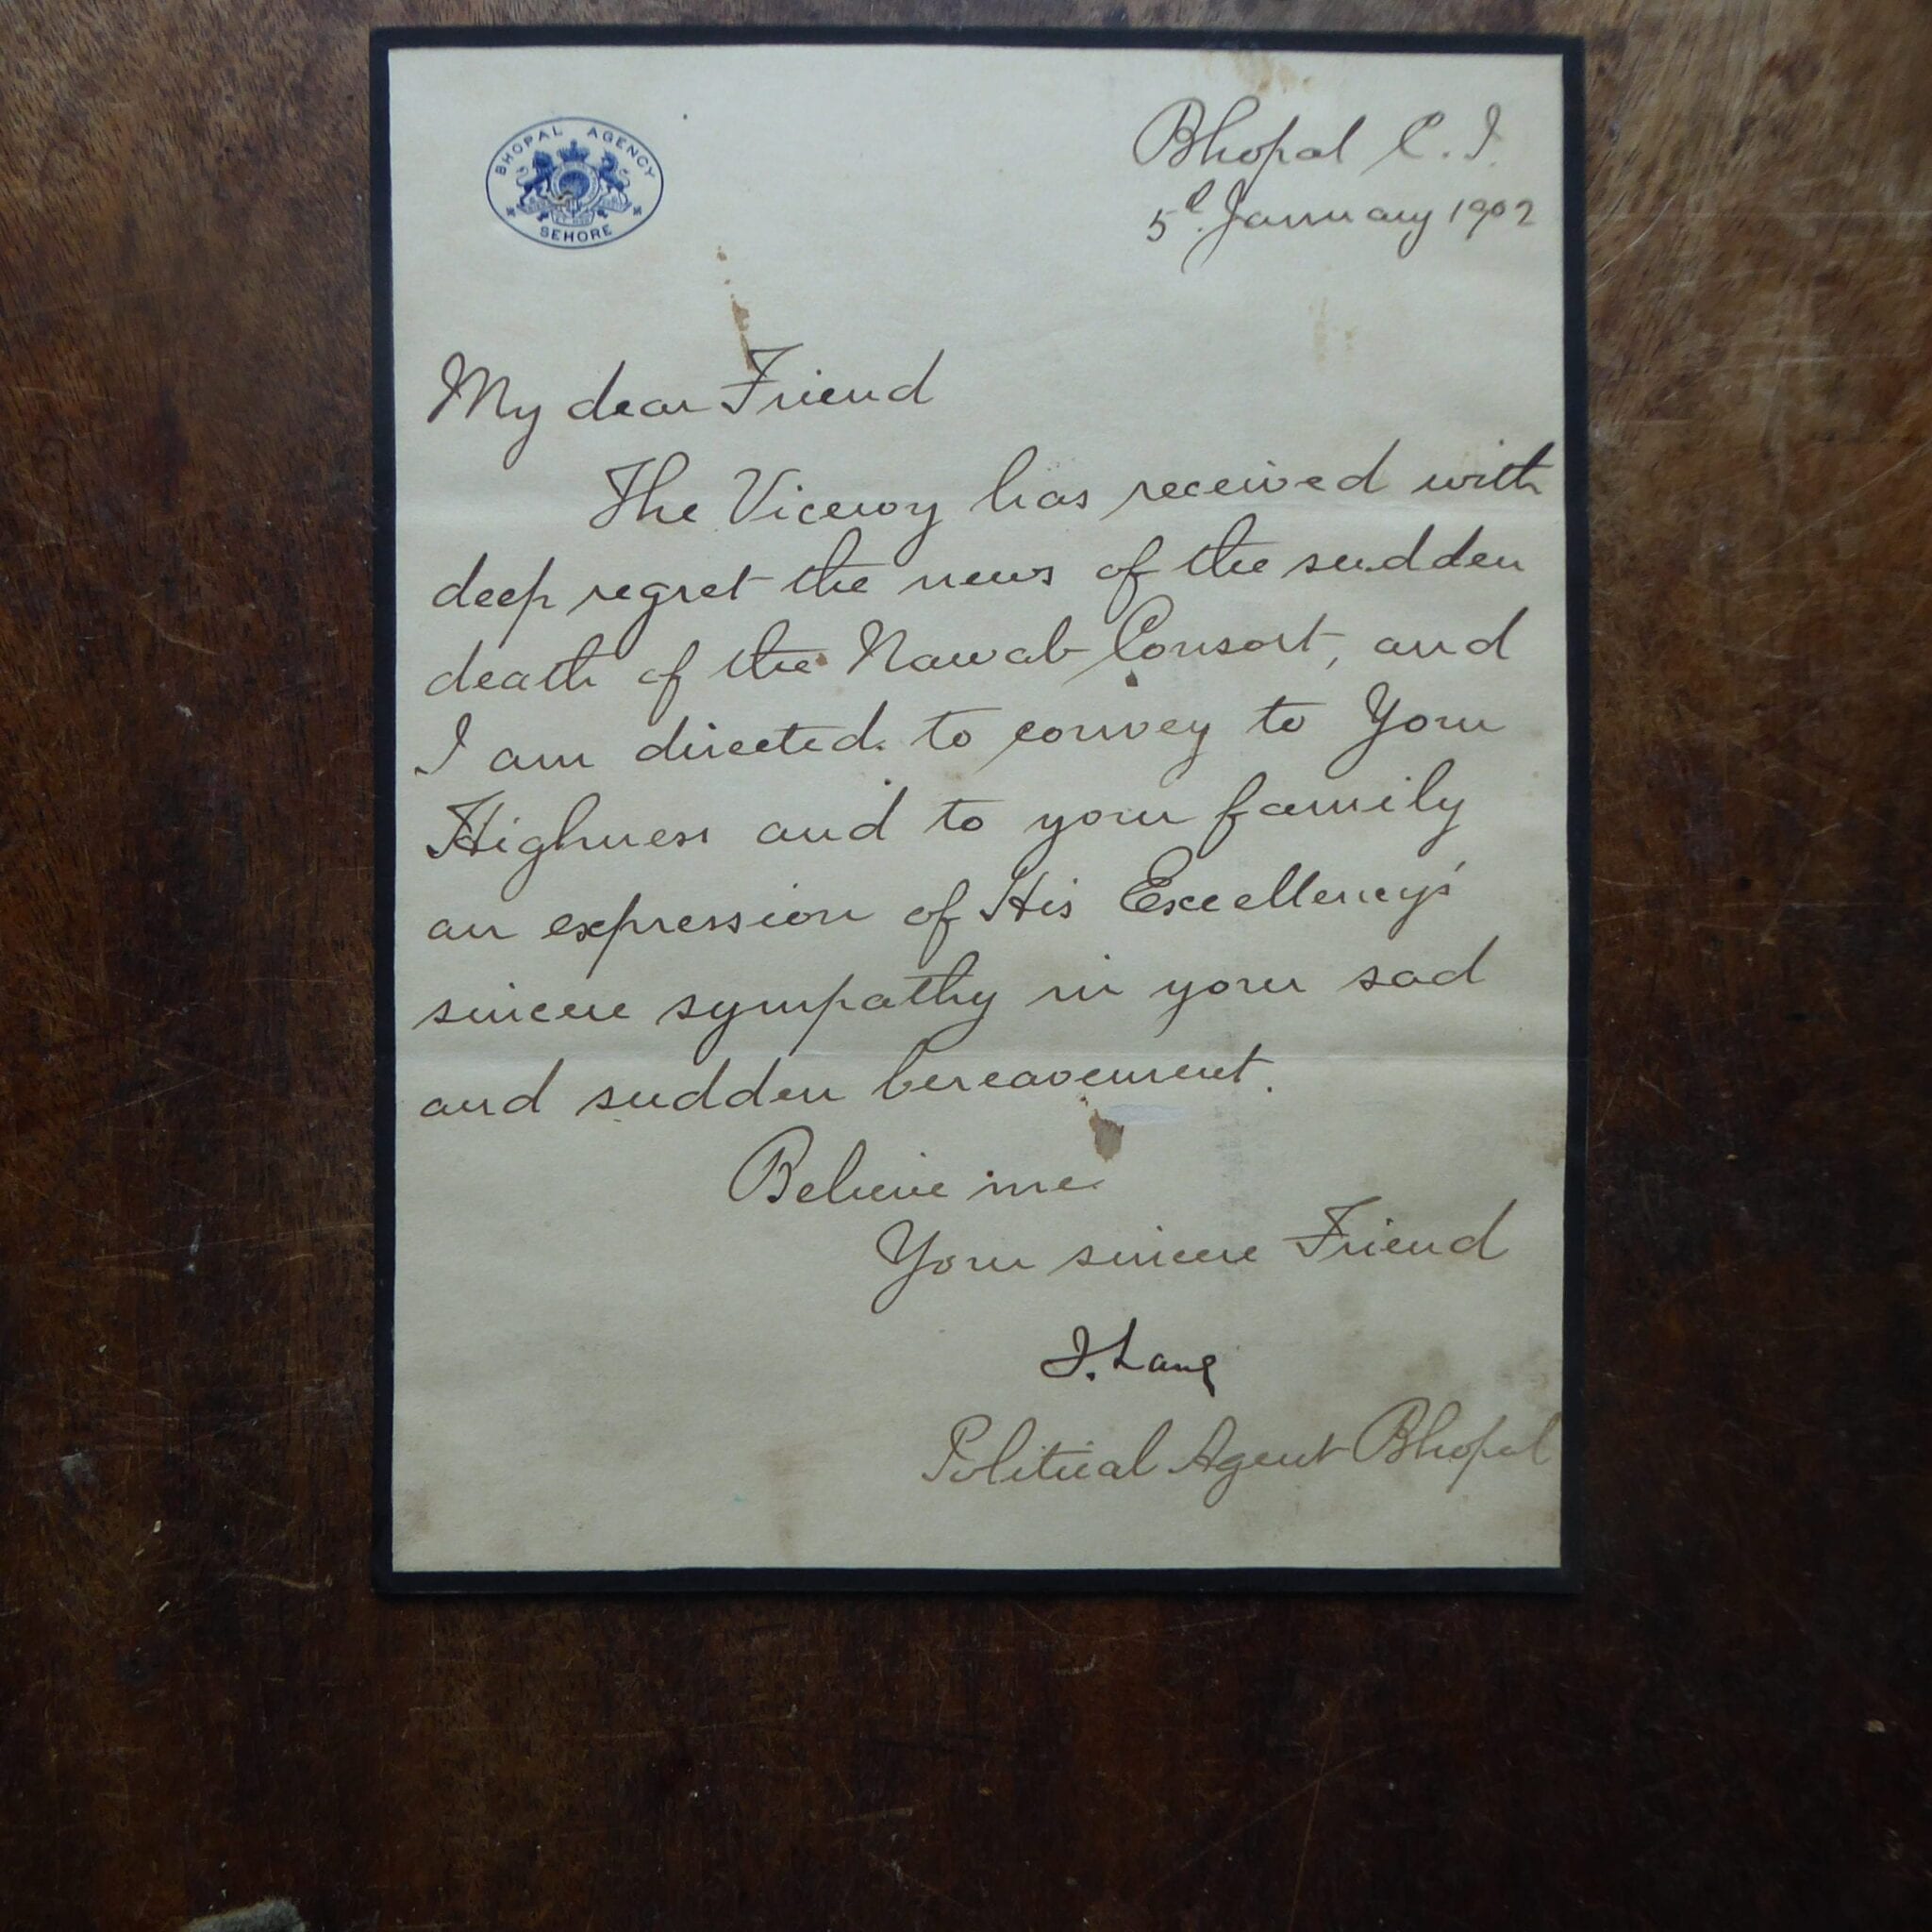 BHOPAL AGENCY
SEHORE
Bhopal C. I.
5th January 1902
My dear Friend
The Viceroy has received with
deep regret the news of the sudden
death of the Nawab Consort, and
I am directed to convey to Your
Highness and to your family
an expression of His Excellency's
sincere sympathy in your sad
and sudden bereavement.
Believe me
Your sincere Friend
J. Lang
Political Agent Bhopal